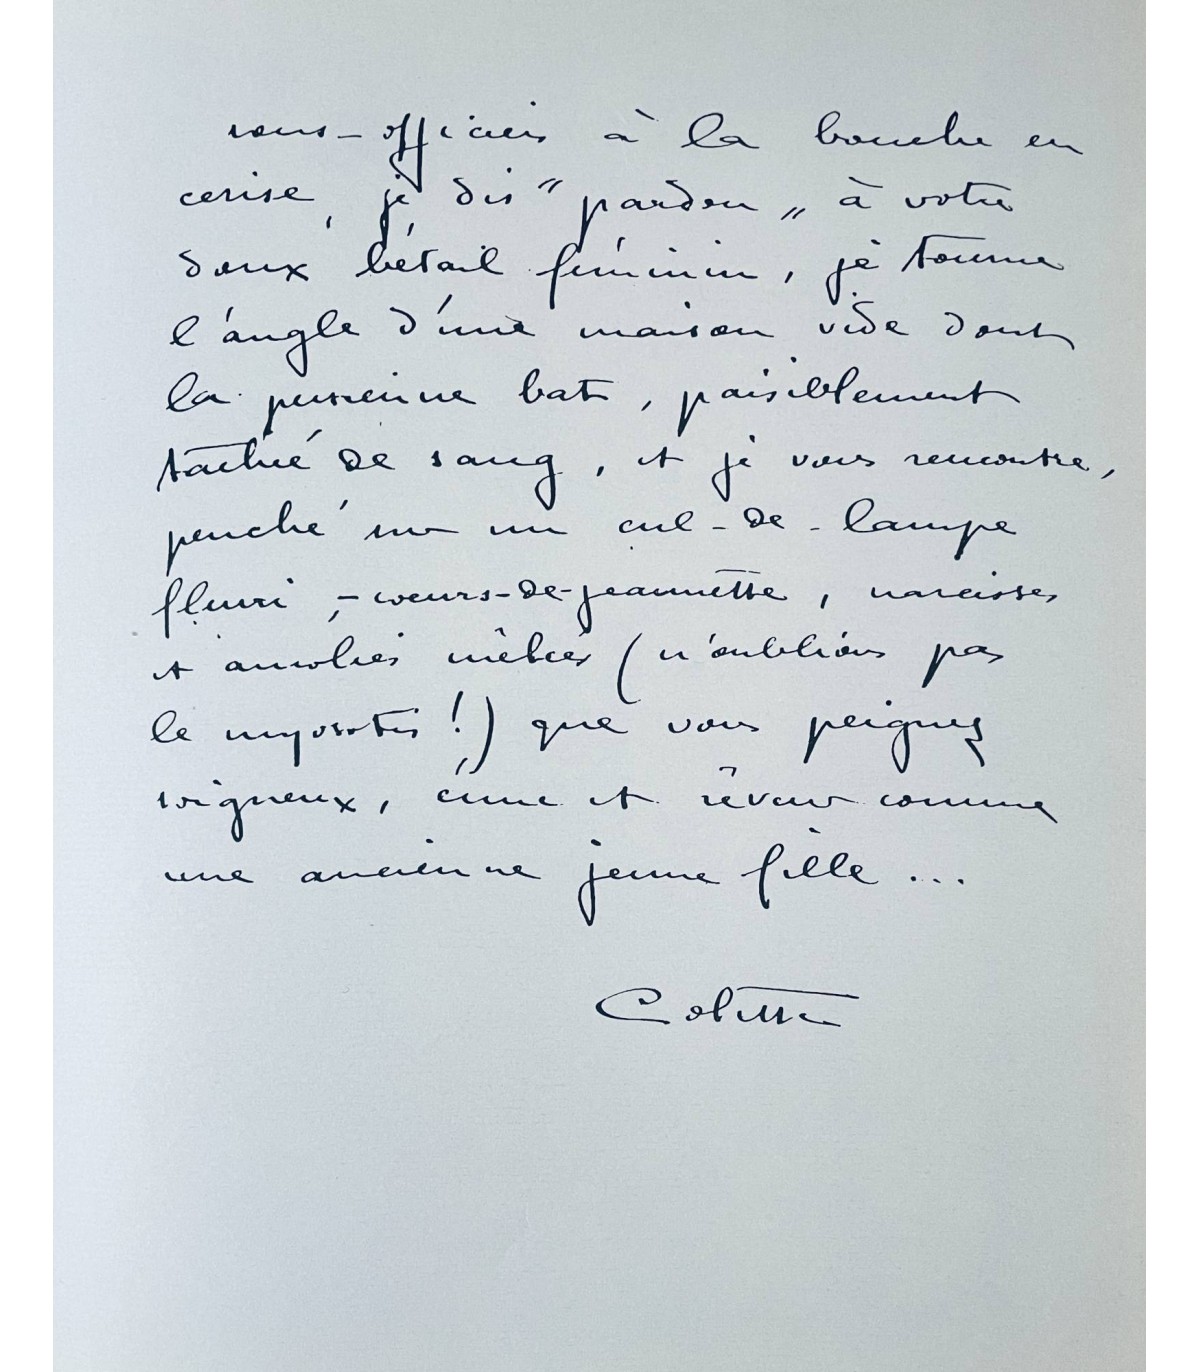 sous-officiers à la bouche en
cerise, je dis "pardon" à votre
doux bétail féminin, je tourne
l'angle d'une maison vide dont
la persienne bat, paisiblement
taché de sang, et je vous rencontre,
penché sur un cul-de-lampe
fleuri, - cœurs-de-jeannette, narcisses
et ancolies mêlées (n'oublions pas
le myosotis!) que vous peignez
soigneux, ému et rêveur comme
une ancienne jeune fille ...
Colette